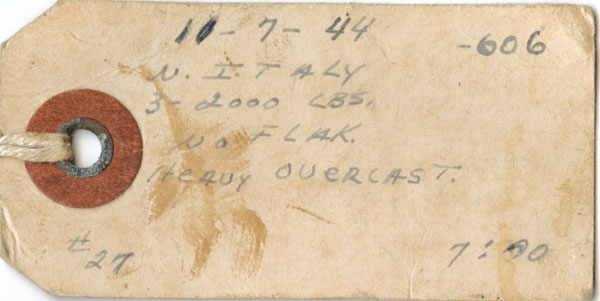 11-7-44 -606
N. ITALY
3-2000 LBS.
NO FLAK.
HEAVY OVERCAST.
#27